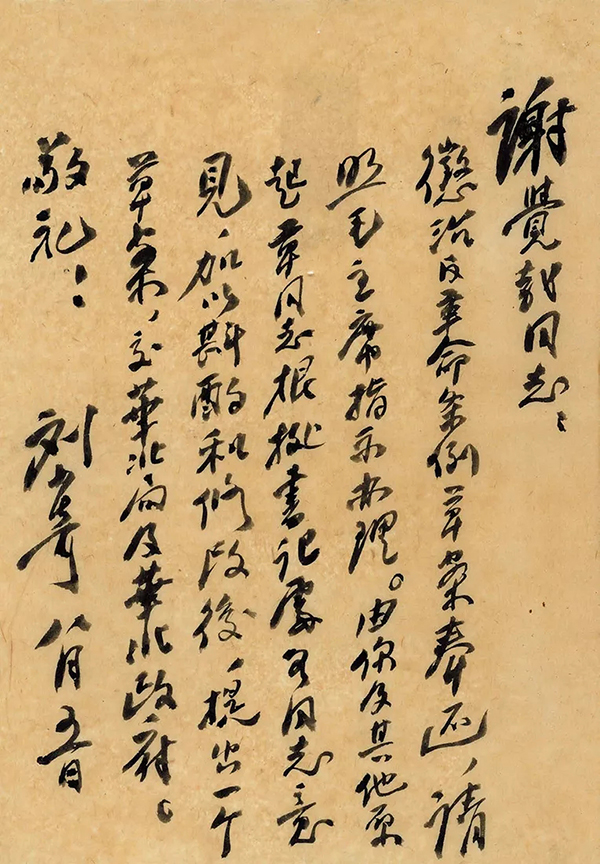 謝覺哉同志：
懲治反革命条例草案奉还，请
照毛主席指示办理。由你及其他原
起草同志根据書记處各同志意
見，加以斟酌和修改後，提出一个
草案，交華北局及華北政府。
敬礼！
刘少奇 八月五日